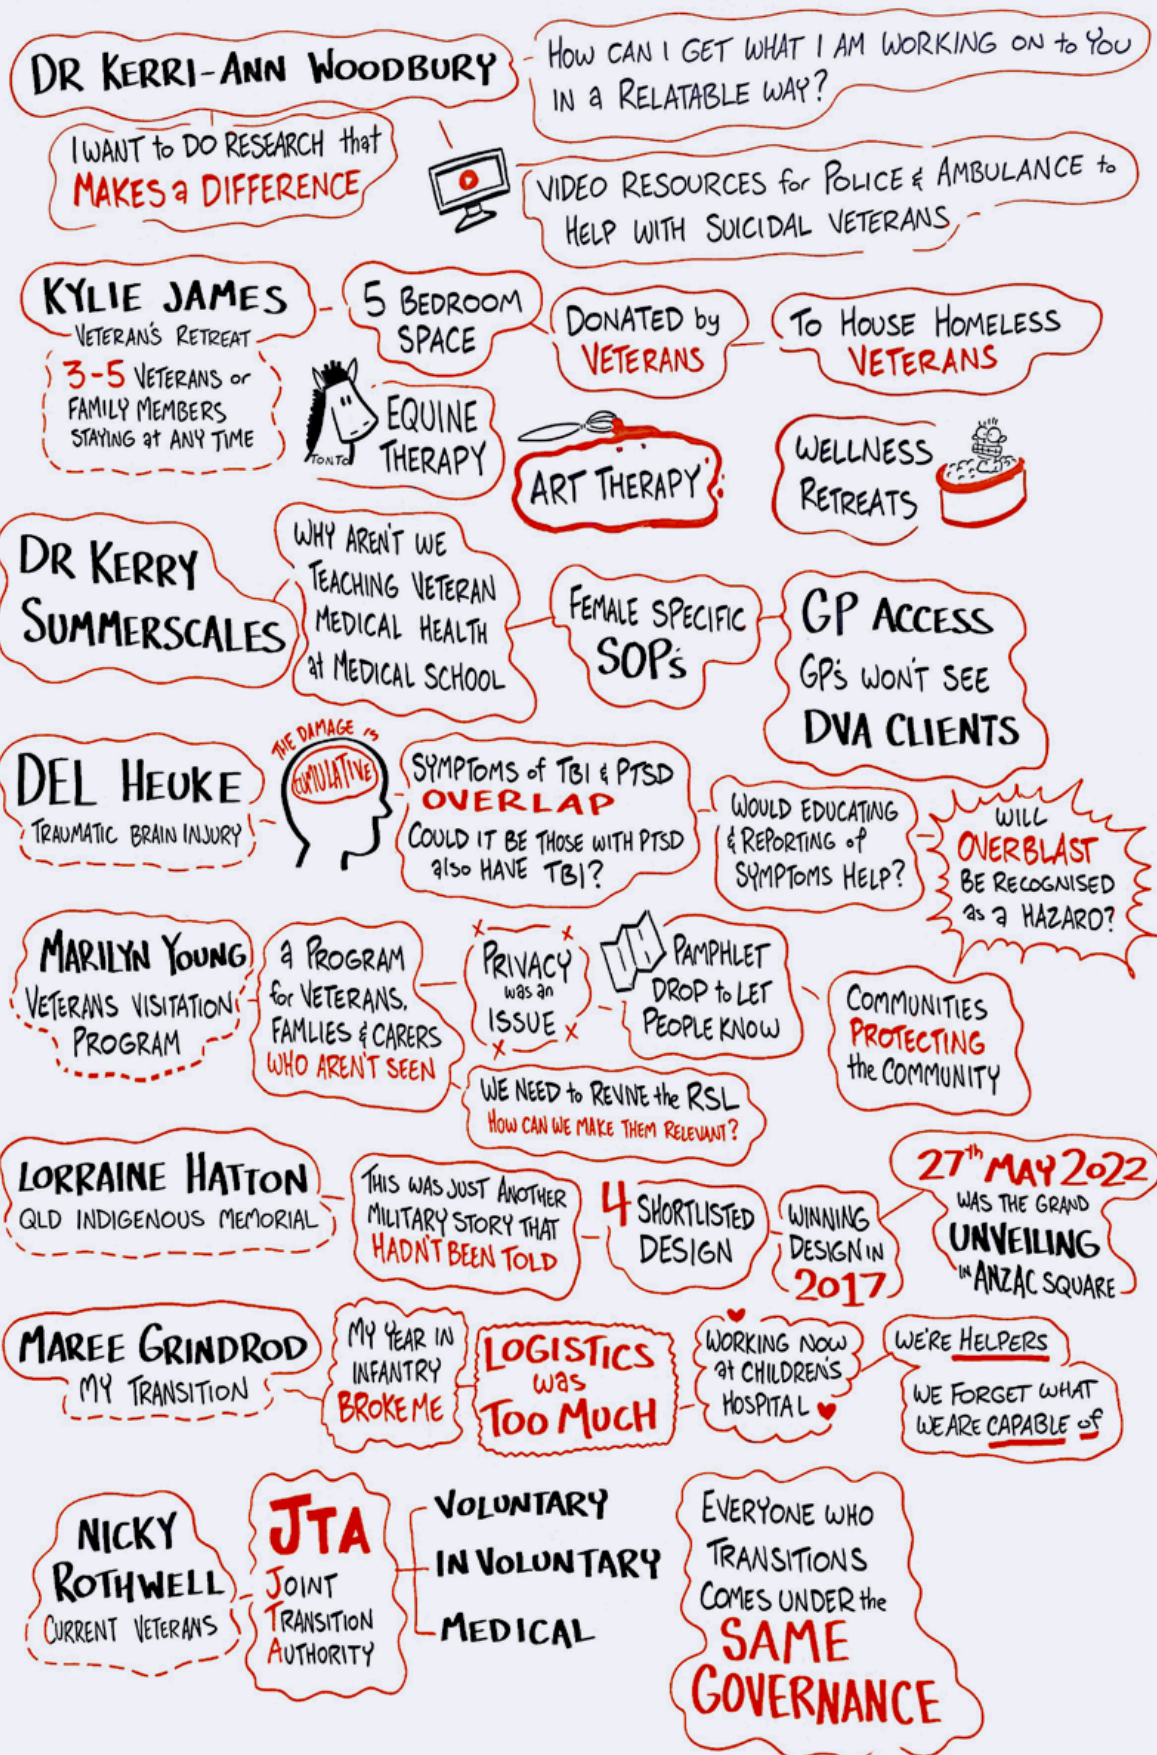 DR KERRI-ANN WOODBURY
HOW CAN I GET WHAT I AM WORKING ON to YOU
IN a RELATABLE WAY?
I WANT to DO RESEARCH that
MAKES a DIFFERENCE
VIDEO RESOURCES for POLICE & AMBULANCE to
HELP WITH SUICIDAL VETERANS
KYLIE JAMES
VETERAN'S RETREAT
3-5 VETERANS or
FAMILY MEMBERS
STAYING at ANY TIME
5 BEDROOM
SPACE
DONATED by
VETERANS
TO HOUSE HOMELESS
VETERANS
TONTO
EQUINE
THERAPY
ART THERAPY
WELLNESS
RETREATS
DR KERRY
SUMMERSCALES
WHY AREN'T WE
TEACHING VETERAN
MEDICAL HEALTH
at MEDICAL SCHOOL
FEMALE SPECIFIC
SOP's
GP ACCESS
GP's WON'T SEE
DVA CLIENTS
DEL HEUKE
TRAUMATIC BRAIN INJURY
THE DAMAGE is
CUMULATIVE
SYMPTOMS of TBI & PTSD
OVERLAP
COULD IT BE THOSE WITH PTSD
also HAVE TBI?
WOULD EDUCATING
& REPORTING of
SYMPTOMS HELP?
WILL
OVERBLAST
BE RECOGNISED
as a HAZARD?
MARILYN YOUNG
VETERANS VISITATION
PROGRAM
a PROGRAM
for VETERANS,
FAMLIES & CARERS
WHO AREN'T SEEN
PRIVACY
was an
ISSUE
PAMPHLET
DROP to LET
PEOPLE KNOW
COMMUNITIES
PROTECTING
the COMMUNITY
WE NEED to REVIVE the RSL
HOW CAN WE MAKE THEM RELEVANT?
LORRAINE HATTON
QLD INDIGENOUS MEMORIAL
THIS WAS JUST ANOTHER
MILITARY STORY THAT
HADN'T BEEN TOLD
4 SHORTLISTED
DESIGN
WINNING
DESIGN IN
2017
27th MAY 2022
WAS THE GRAND
UNVEILING
IN ANZAC SQUARE
MAREE GRINDROD
MY TRANSITION
MY YEAR IN
INFANTRY
BROKE ME
LOGISTICS
was
TOO MUCH
WORKING NOW
at CHILDREN'S
HOSPITAL
WE'RE HELPERS
WE FORGET WHAT
WE ARE CAPABLE of
NICKY
ROTHWELL
CURRENT VETERANS
JTA
JOINT
TRANSITION
AUTHORITY
VOLUNTARY
INVOLUNTARY
MEDICAL
EVERYONE WHO
TRANSITIONS
COMES UNDER the
SAME
GOVERNANCE